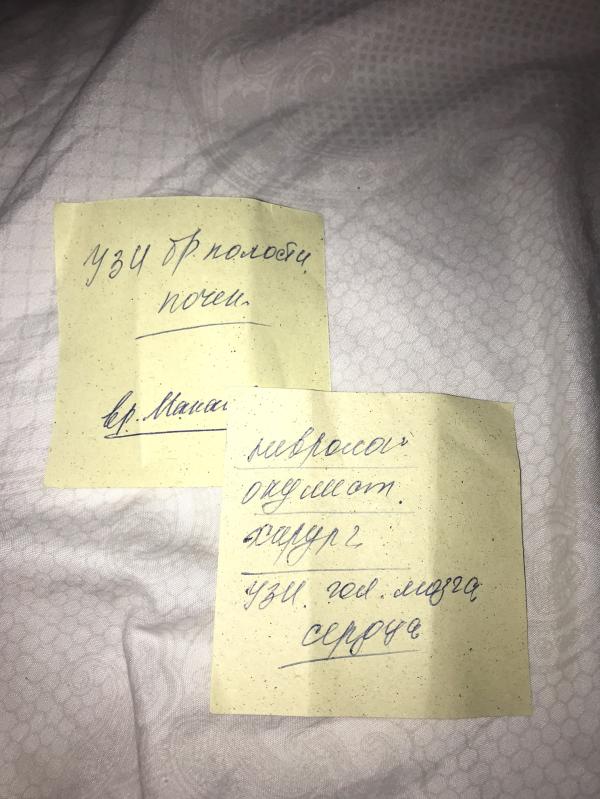 УЗИ бр. полости,
почек
вр.
невролог
окулист.
хирург
УЗИ. гол. мозга,
сердца